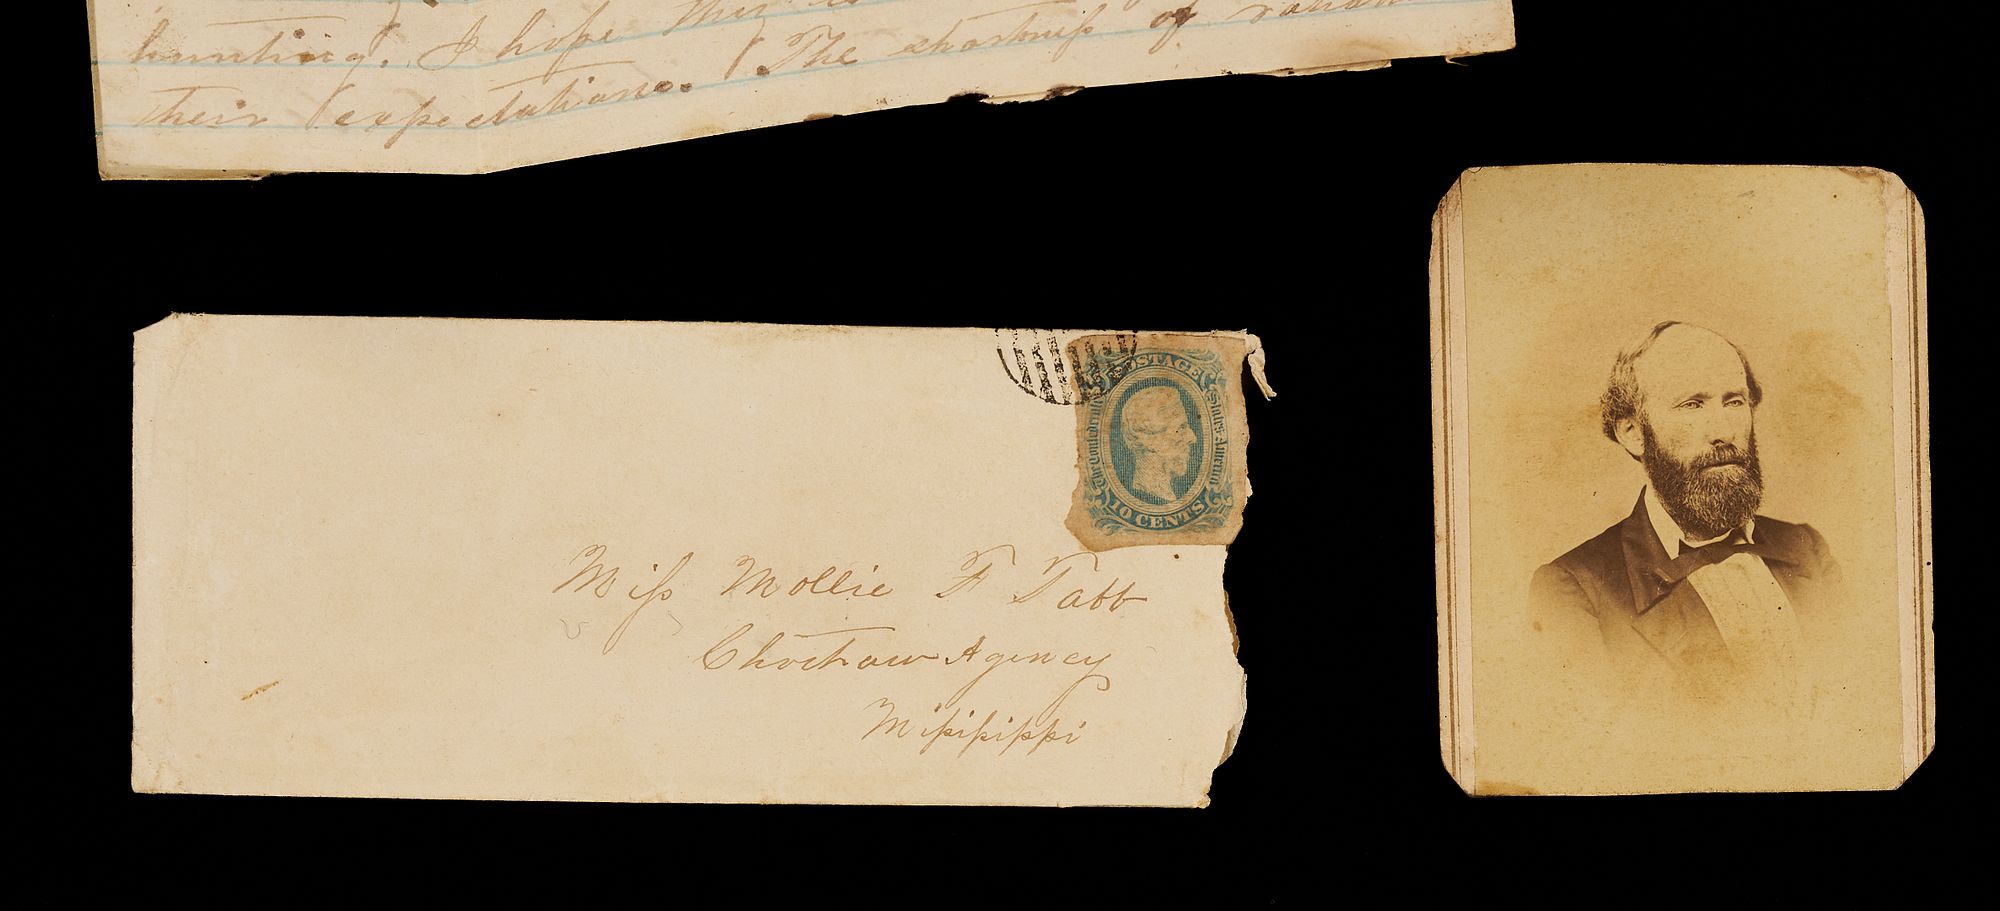 hunting. I hope they
their expectations. The shortneſs of
POSTAGE
The Confederate States America
10 CENTS
Miſs Mollie F Tabb
Choctaw Agency
Miſsiſsippi